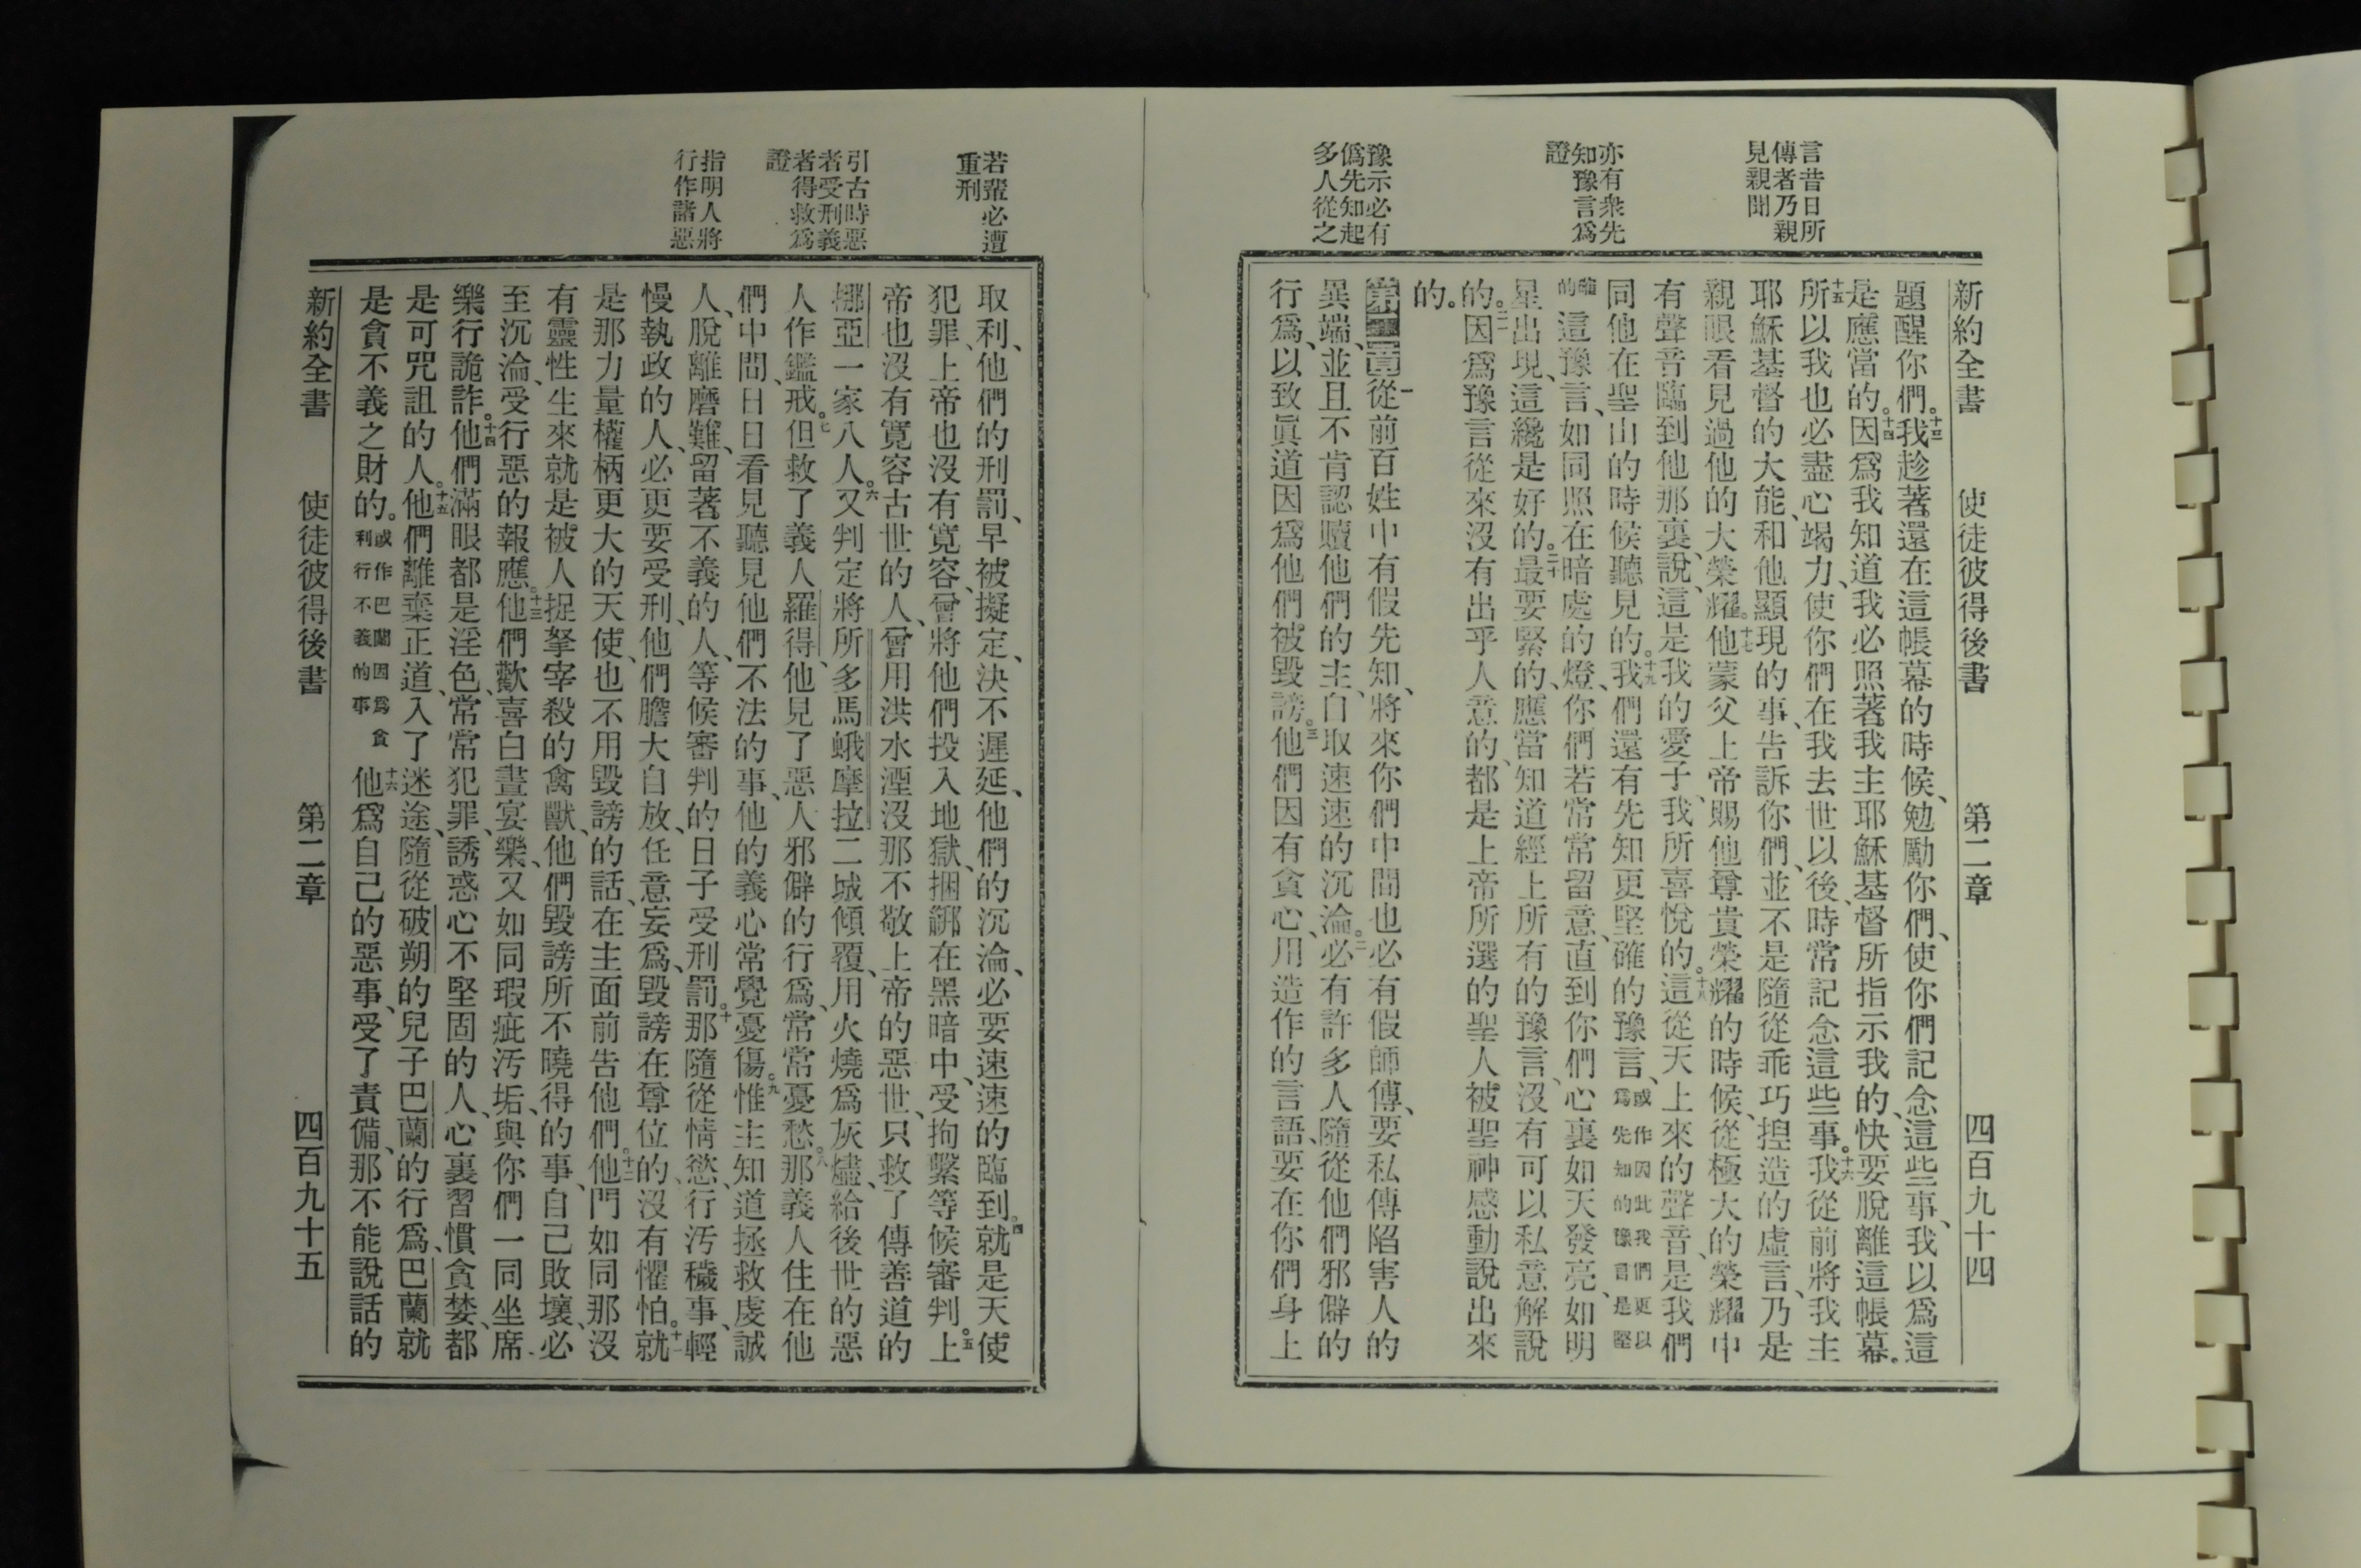 言昔日所
傳者乃親
見親聞
亦有衆先
知豫言爲
證
豫示必有
僞先知起
多人從之
新約全書 使徒彼得後書 第二章 四百九十四
題醒你們。十三我趁著還在這帳幕的時候、勉勵你們、使你們記念這些事、我以爲這
是應當的。十四因爲我知道我必照著我主耶穌基督所指示我的、快要脫離這帳幕。
十五所以我也必盡心竭力、使你們在我去世以後、時常記念這些事。十六我從前將我主
耶穌基督的大能、和他顯現的事、告訴你們、並不是隨從乖巧揑造的虛言、乃是
親眼看見過他的大榮耀。十七他蒙父上帝賜他尊貴榮耀的時候、從極大的榮耀中
有聲音臨到他那裏、說、這是我的愛子、我所喜悅的。十八這從天上來的聲音、是我們
同他在聖山的時候聽見的。十九我們還有先知更堅確的豫言、或作因此我們更以爲先知的豫言是堅
確的這豫言、如同照在暗處的燈、你們若常常留意、直到你們心裏如天發亮、如明
星出現、這纔是好的。二十最要緊的、應當知道經上所有的豫言、沒有可以私意解說
的。二一因爲豫言從來沒有出乎人意的、都是上帝所選的聖人被聖神感動說出來
的。
第二章一從前百姓中有假先知、將來你們中間也必有假師傅、要私傳陷害人的
異端、並且不肯認贖他們的主、自取速速的沉淪。二必有許多人隨從他們邪僻的
行爲、以致眞道因爲他們被毀謗。三他們因有貪心、用造作的言語、要在你們身上
若輩必遭
重刑
引古時惡
者受刑義
者得救爲
證
指明人將
行作諸惡
取利、他們的刑罰、早被擬定、決不遲延、他們的沉淪、必要速速的臨到。四就是天使
犯罪、上帝也沒有寬容、曾將他們投入地獄、捆綁在黑暗中、受拘繫等候審判。五上
帝也沒有寬容古世的人、曾用洪水湮沒那不敬上帝的惡世、只救了傳善道的
挪亞一家八人。六又判定將所多馬蛾摩拉二城傾覆、用火燒爲灰燼、給後世的惡
人作鑑戒。七但救了義人羅得、他見了惡人邪僻的行爲、常常憂愁。八那義人住在他
們中間、日日看見聽見他們不法的事、他的義心常覺憂傷。九惟主知道拯救虔誠
人、脫離磨難、留著不義的人、等候審判的日子受刑罰。十那隨從情慾、行污穢事、輕
慢執政的人、必更要受刑、他們膽大自放、任意妄爲、毀謗在尊位的、沒有懼怕。十一就
是那力量權柄更大的天使、也不用毀謗的話、在主面前告他們。十二他門如同那沒
有靈性生來就是被人捉拏宰殺的禽獸、他們毀謗所不曉得的事、自己敗壞、必
至沉淪、受行惡的報應。十三他們歡喜白晝宴樂、又如同瑕疵污垢、與你們一同坐席
樂行詭詐。十四他們滿眼都是淫色、常常犯罪、誘惑心不堅固的人、心裏習慣貪婪、都
是可咒詛的人。十五他們離棄正道、入了迷途、隨從破朔的兒子巴蘭的行爲、巴蘭就
是貪不義之財的。或作巴蘭因爲貪利行不義的事十六他爲自己的惡事、受了責備、那不能說話的
新約全書 使徒彼得後書 第二章 四百九十五